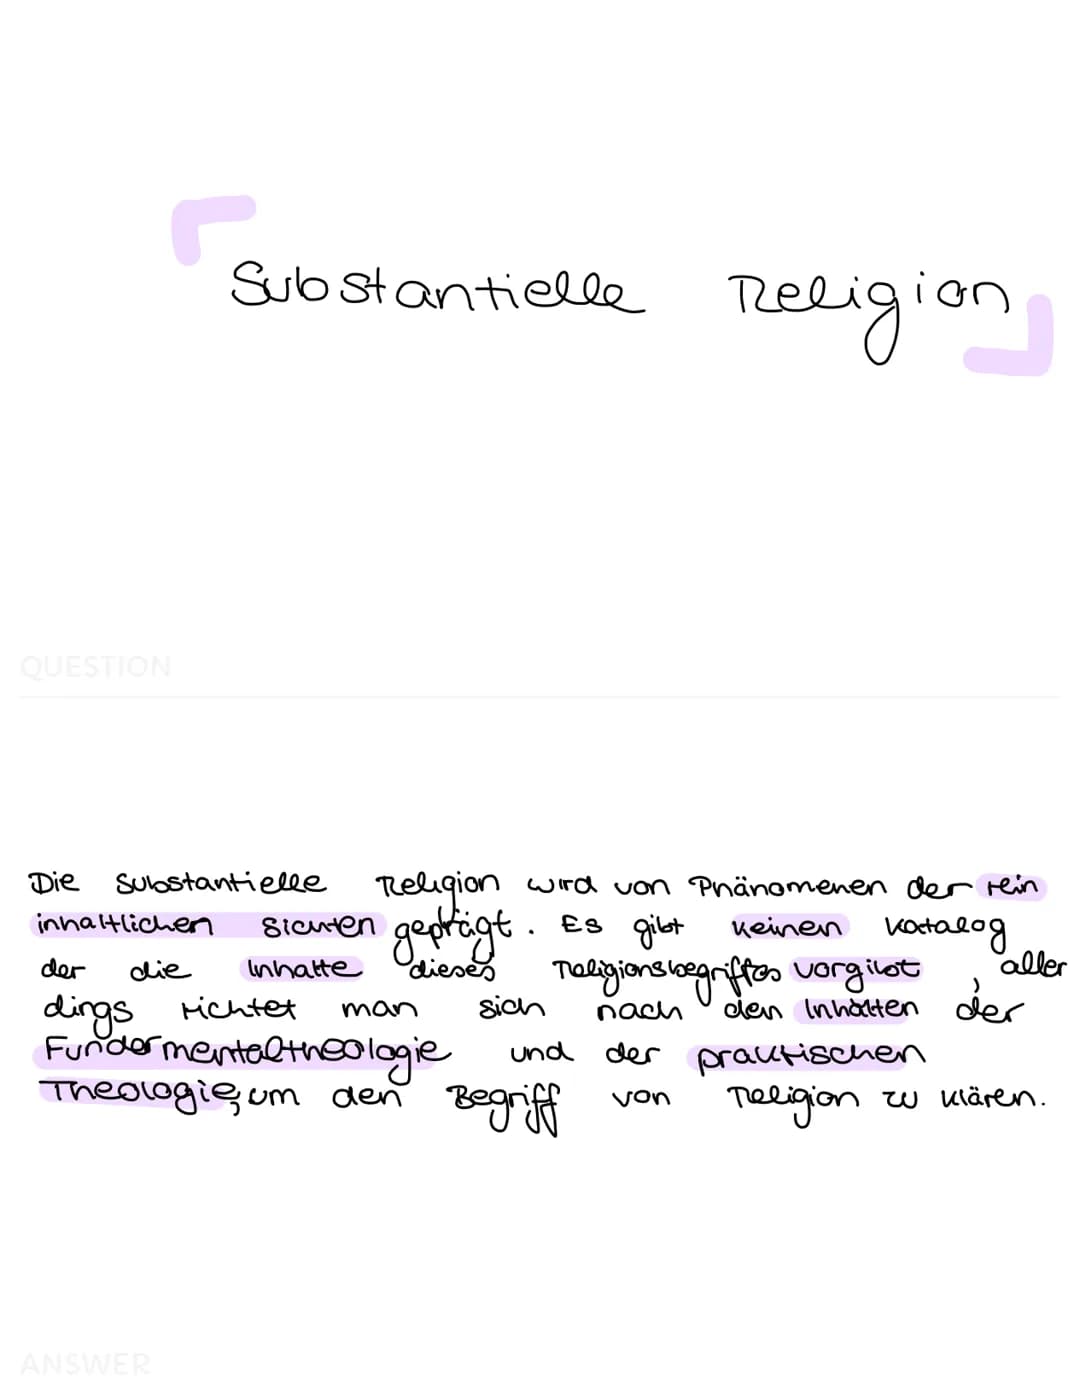 Substantielle Religion
QUESTION
Die substantielle Religion wird von Phänomenen der rein
inhaltlichen sichten geprägt. Es gibt keinen Katalog
der die Inhalte dieses Religionsbegriffes vorgibt, aller
dings richtet man sich nach den Inhalten der
Fundermentaltheologie und der praktischen
Theologie, um den Begriff von Religion zu klären.
ANSWER